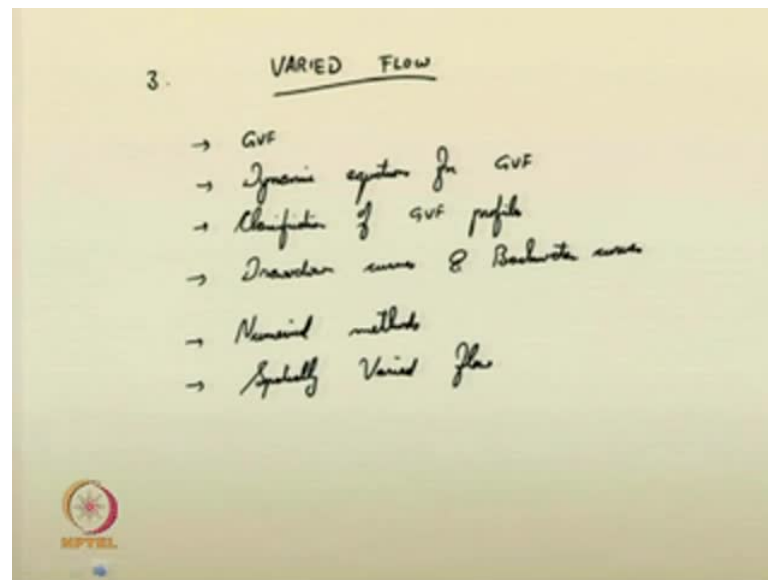 3. VARIED FLOW
→ GVF
→ Dynamic equations for GVF
→ Classification of GVF profiles
→ Drawdown curves & Backwater curves
→ Numerical methods
→ Spatially Varied flow
NPTEL